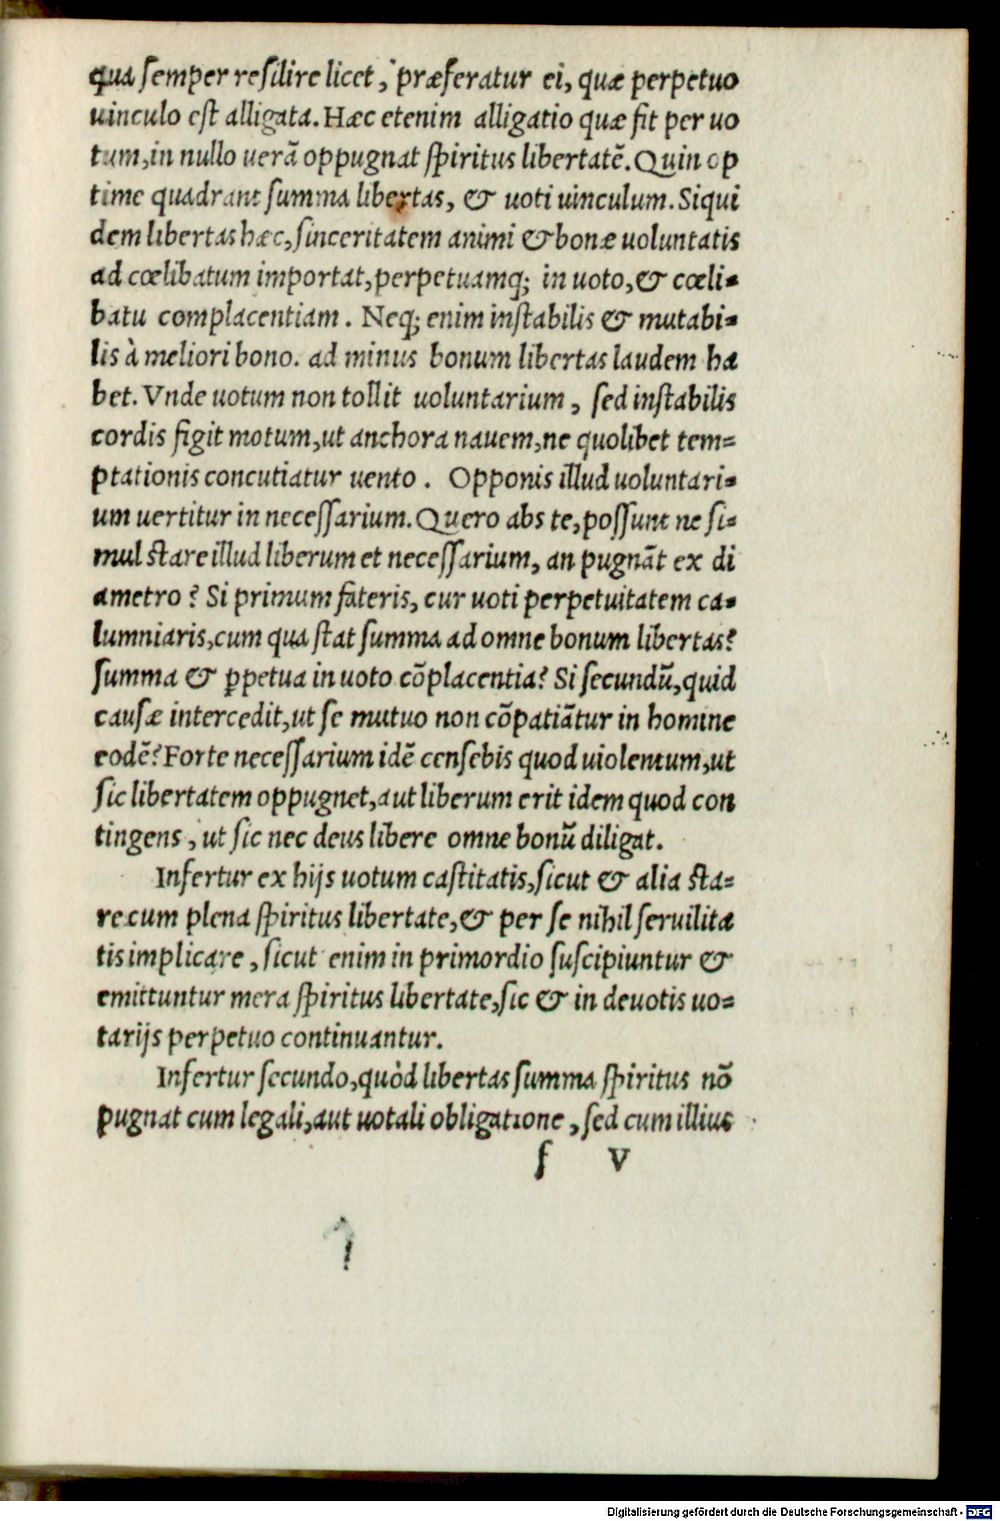 qua semper resilire licet, præferatur ei, quæ perpetuo
uinculo est alligata. Hæc etenim alligatio quæ fit per uo
tum, in nullo uerã oppugnat spiritus libertatẽ. Quin op
time quadrant summa libertas, & uoti uinculum. Siqui
dem libertas hæc, sinceritatem animi & bonæ uoluntatis
ad cœlibatum importat, perpetuamq; in uoto, & cœli-
batu complacentiam. Neq; enim instabilis & mutabi-
lis à meliori bono. ad minus bonum libertas laudem ha
bet. Vnde uotum non tollit uoluntarium, sed instabilis
cordis figit motum, ut anchora nauem, ne quolibet tem=
ptationis concutiatur uento. Opponis illud uoluntari-
um uertitur in necessarium. Quero abs te, possunt ne si-
mul stare illud liberum et necessarium, an pugnãt ex di
ametro? Si primum fateris, cur uoti perpetuitatem ca-
lumniaris, cum qua stat summa ad omne bonum libertas?
summa & ꝑpetua in uoto cõplacentia? Si secundũ, quid
causæ intercedit, ut se mutuo non cõpatiãtur in homine
eodẽ? Forte necessarium idẽ censebis quod uiolentum, ut
sic libertatem oppugnet, aut liberum erit idem quod con
tingens, ut sic nec deus libere omne bonũ diligat.
Infertur ex hijs uotum castitatis, sicut & alia sta=
re cum plena spiritus libertate, & per se nihil seruilita
tis implicare, sicut enim in primordio suscipiuntur &
emittuntur mera spiritus libertate, sic & in deuotis uo=
tarijs perpetuo continuantur.
Infertur secundo, quòd libertas summa spiritus nõ
pugnat cum legali, aut uotali obligatione, sed cum illius
f v
Digitalisierung gefördert durch die Deutsche Forschungsgemeinschaft - DFG